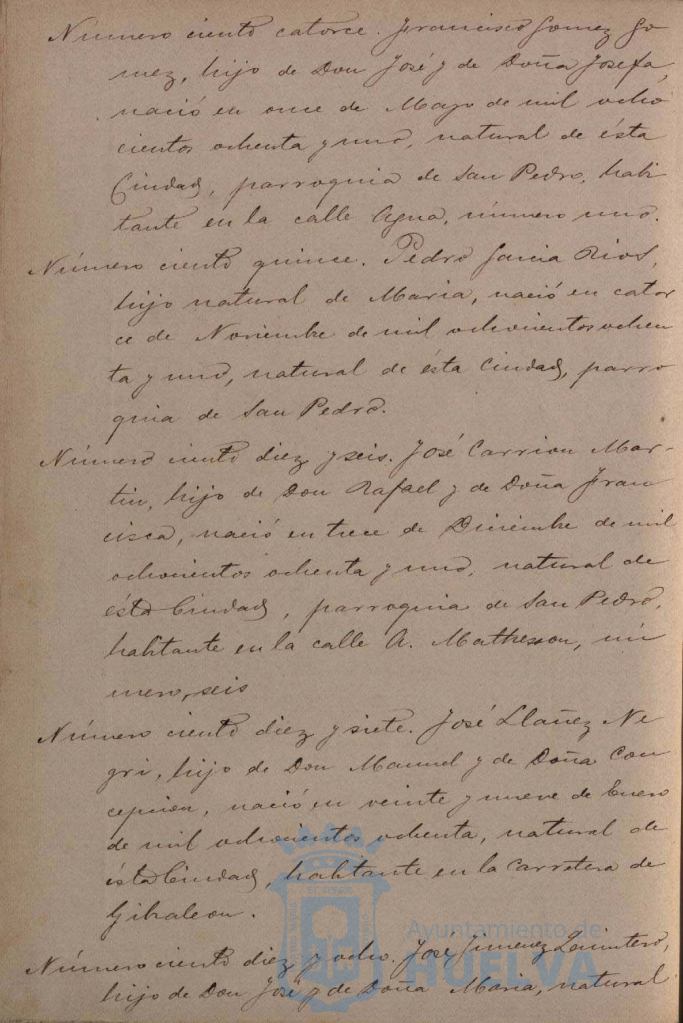 Número ciento catorce. Francisco Gomez Go
mez, hijo de Don José y de Doña Josefa,
nació en once de Mayo de mil ocho
cientos ochenta y uno, natural de ésta
Ciudad, parroquia de San Pedro, habi
tante en la calle Agua, número uno.
Número ciento quince. Pedro Garcia Rios,
hijo natural de Maria, nació en cator
ce de Noviembre de mil ochocientos ochen
ta y uno, natural de ésta Ciudad, parro
quia de San Pedro.
Número ciento diez y seis. José Carrion Mar-
tin, hijo de Don Rafael y de Doña Fran
cisca, nació en trece de Diciembre de mil
ochocientos ochenta y uno, natural de
ésta Ciudad, parroquia de San Pedro,
habitante en la calle A. Mathesson, nú
mero, seis
Número ciento diez y siete. José Llañez Ne
gri, hijo de Don Manuel y de Doña Con
cepcion, nació en veinte y nueve de Enero
de mil ochocientos ochenta, natural de
ésta Ciudad, habitante en la Carretera de
Gibraleon.
Número ciento diez y ocho. José Jimenez Quintero,
hijo de Don José y de Doña Maria, natural
Ayuntamiento de
HUELVA